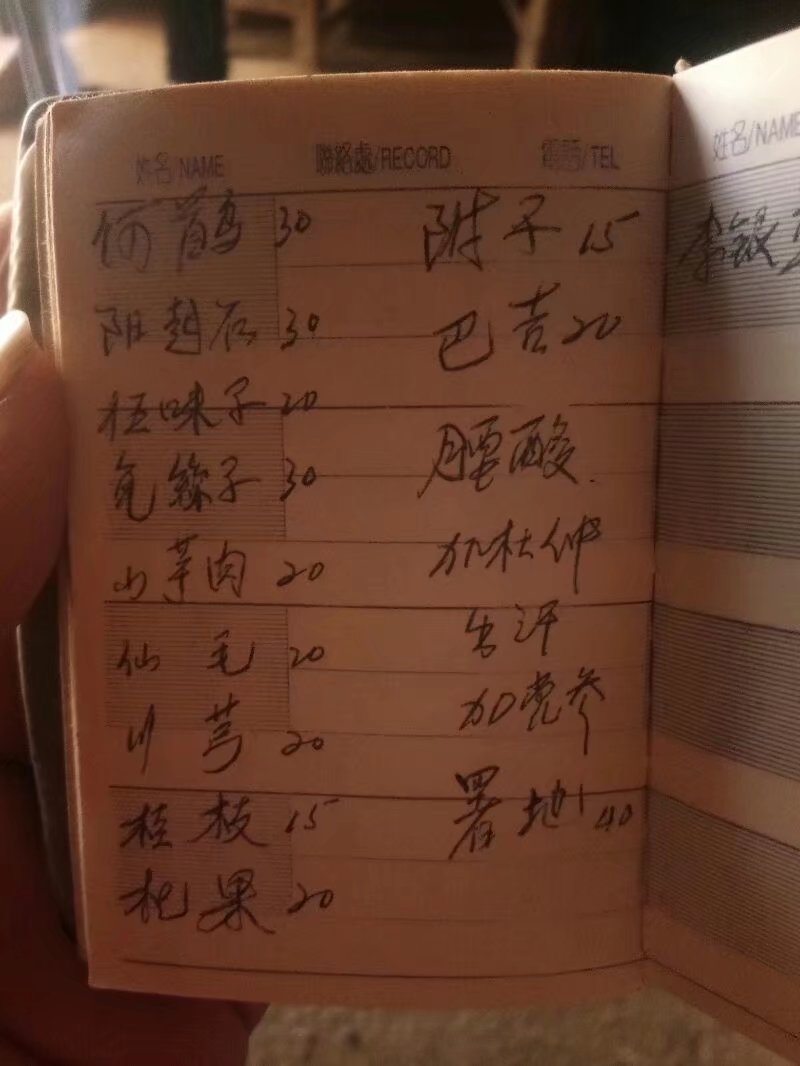 姓名/NAME 聯絡處/RECORD 電話/TEL
何首乌 30
阳起石 30
枉味子 20
兔絲子 30
山芋肉 20
仙毛 20
川芎 20
桂枝 15
杞果 20
附子 15
巴吉 20
腰酸
加杜仲
出汗
加党参
署地 40
姓名/NAME
李银